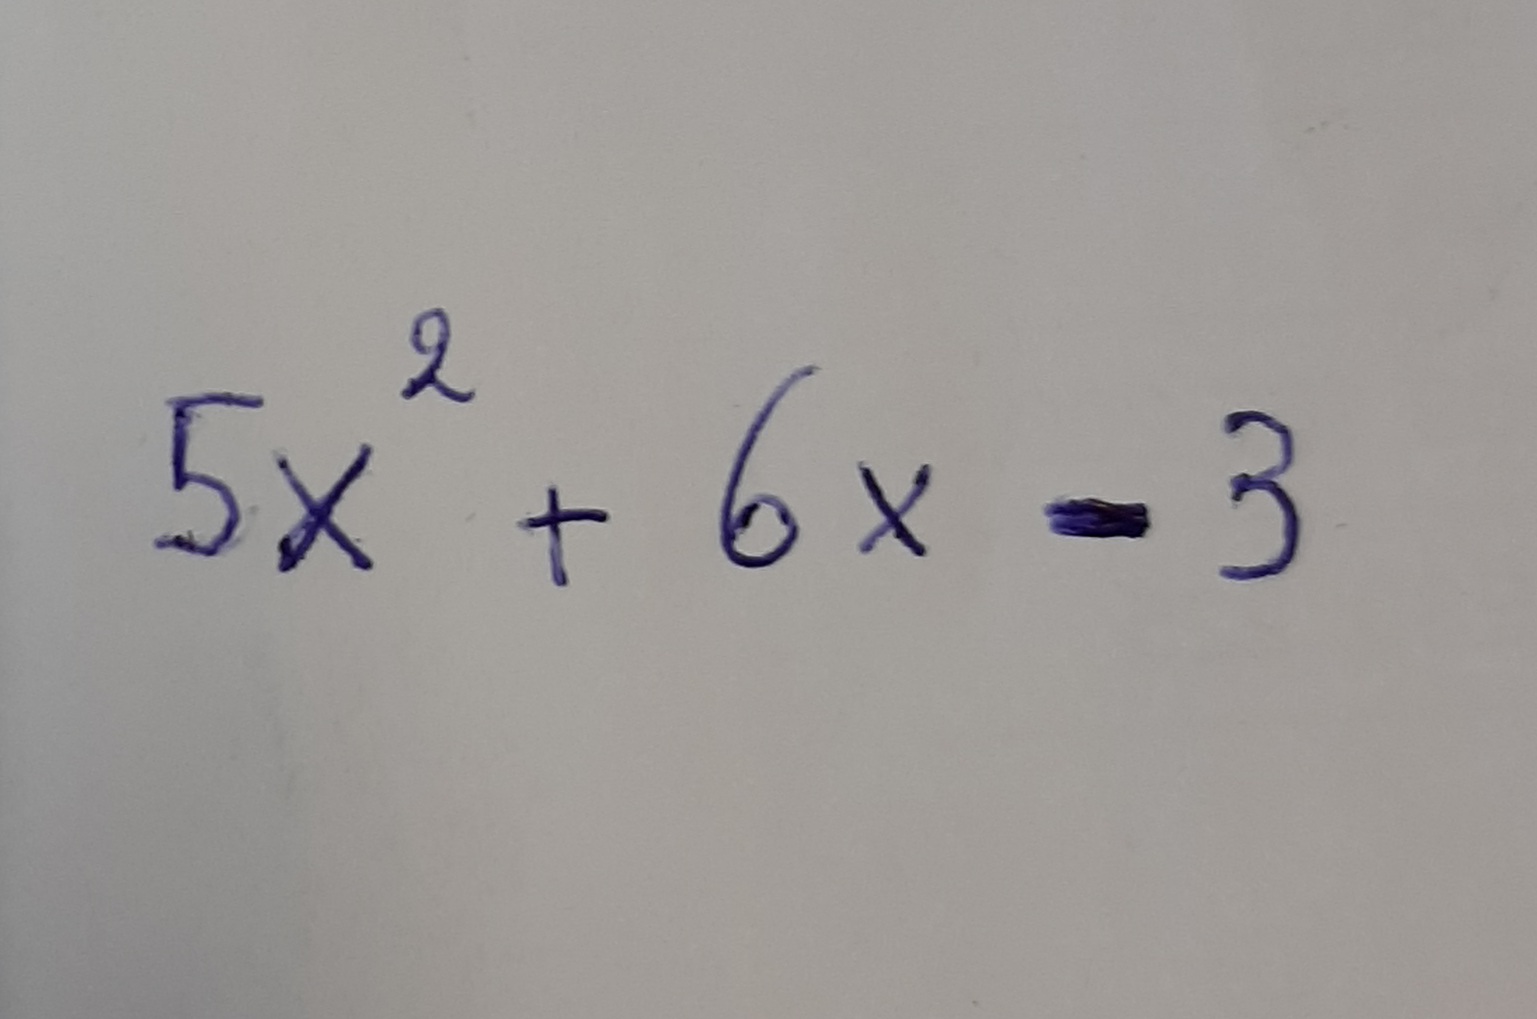 5x² + 6x - 3